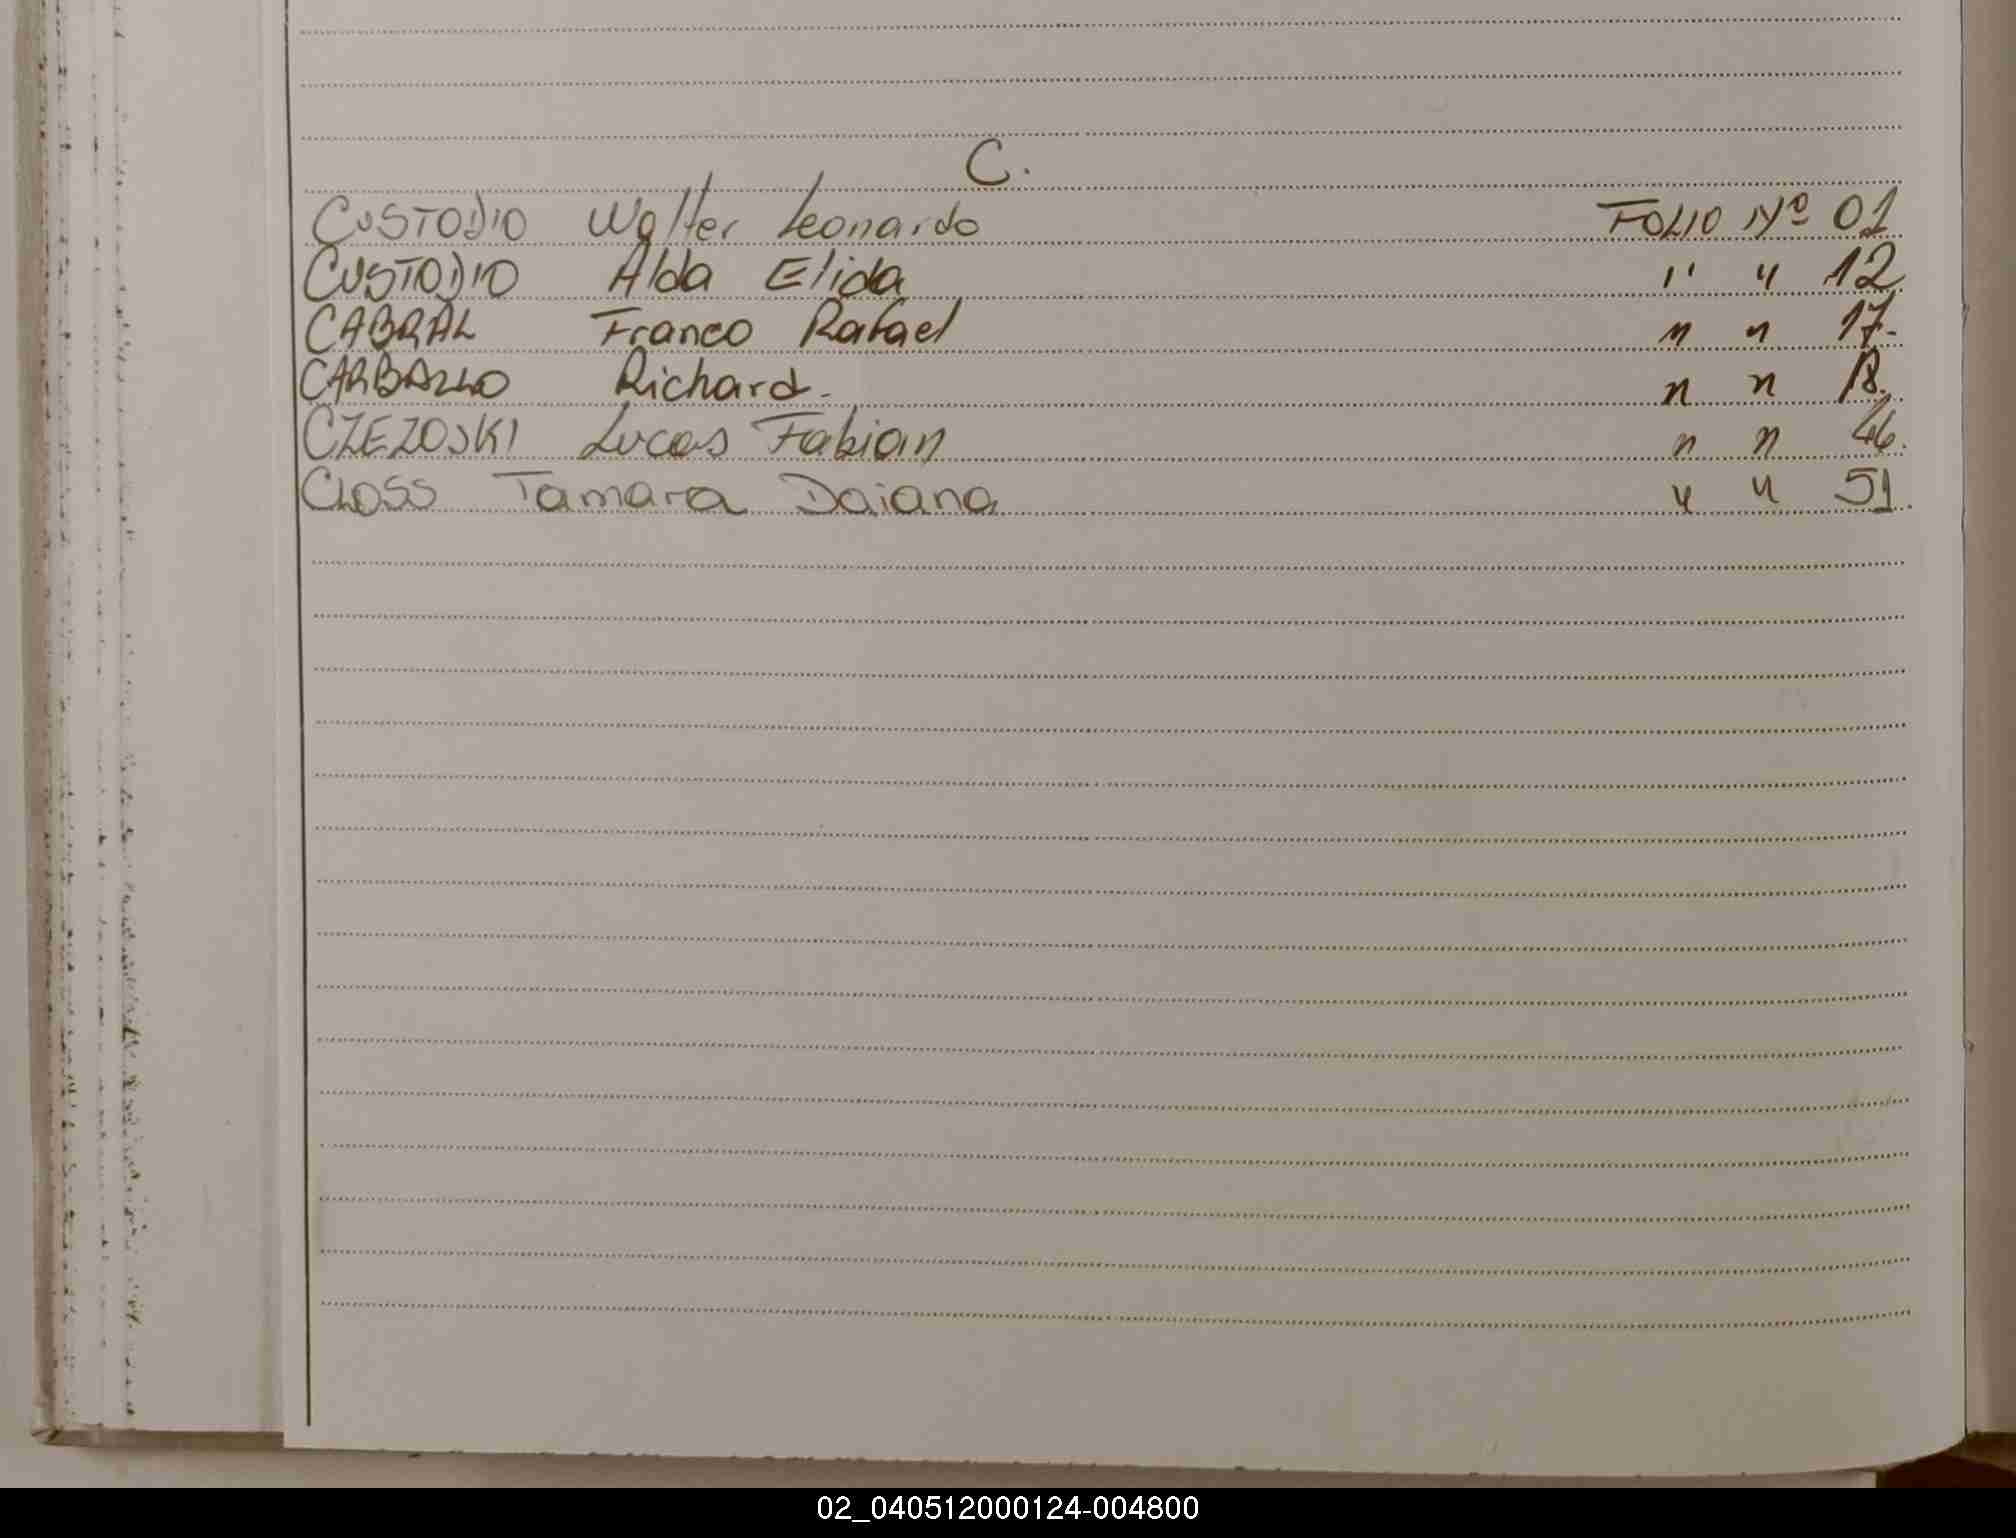 C.
CUSTODIO Walter Leonardo FOLIO Nº 01
CUSTODIO Alda Elida " " 12
CABRAL Franco Rafael " " 17.
CARBALLO Richard. " " 18.
CZEZOSKI Lucas Fabian " " 46.
CLOSS Tamara Daiana " " 51.
02_040512000124-004800